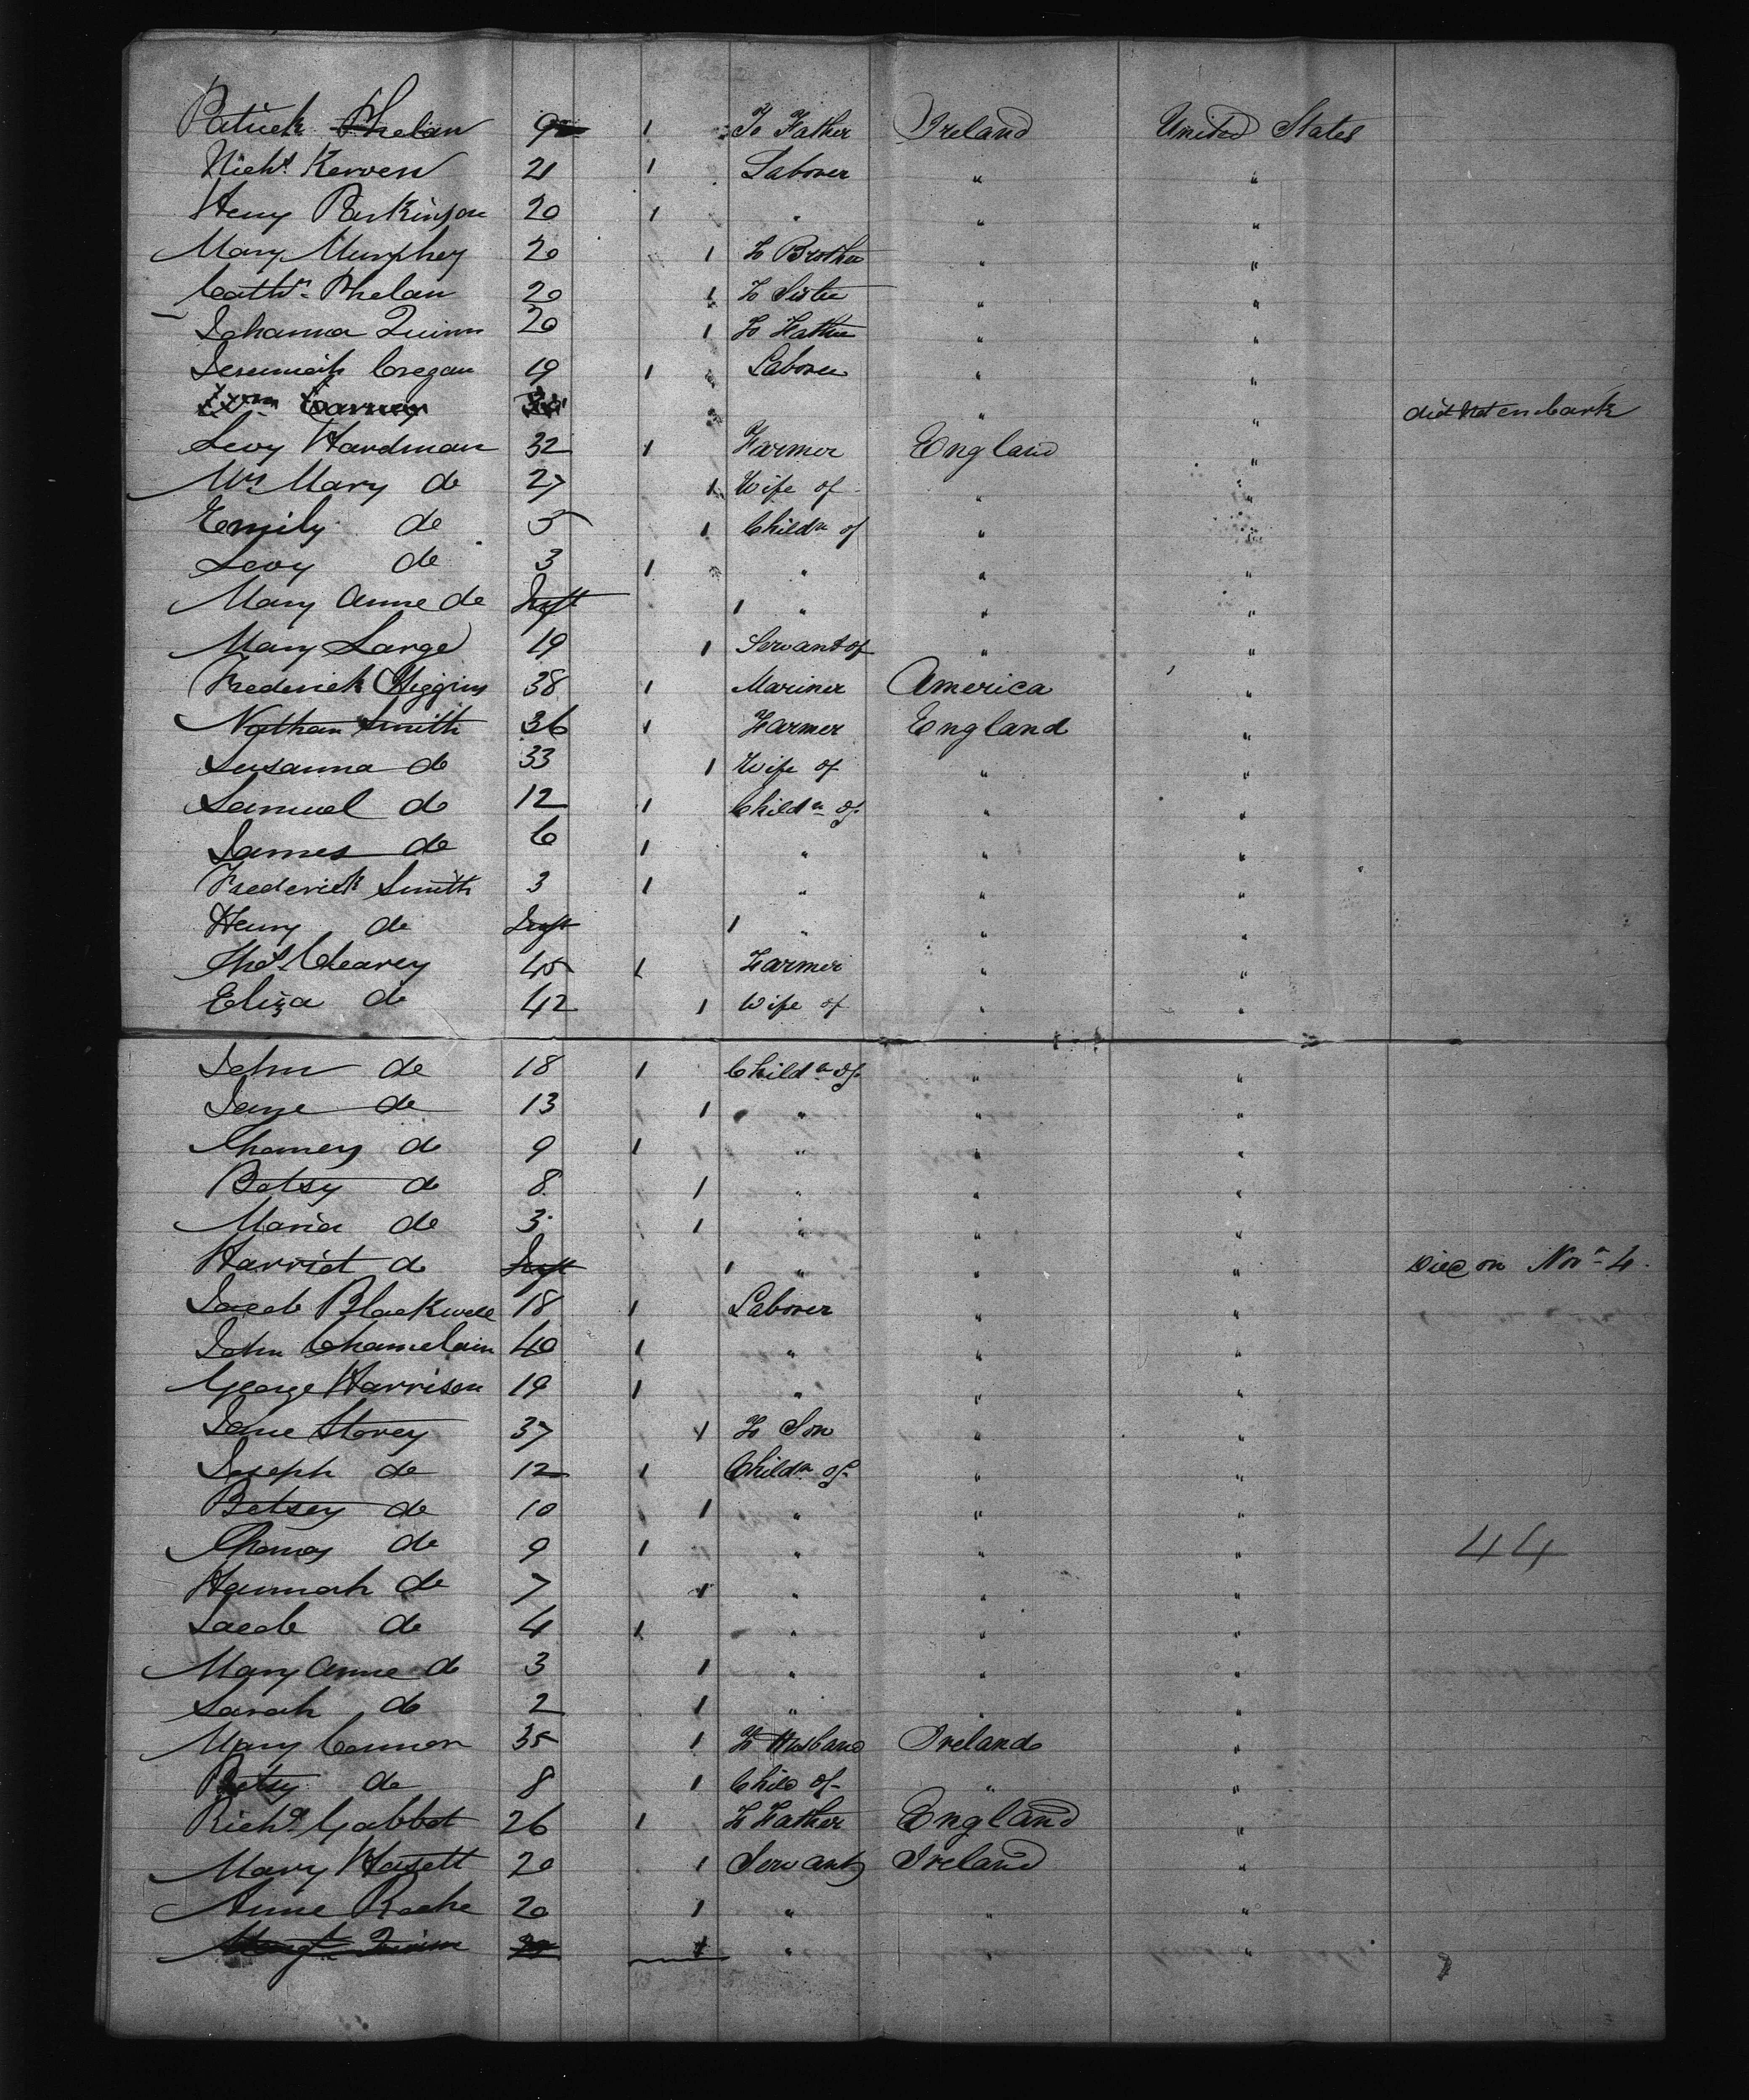 Patrick Phelan 9 1 To Father Ireland United States
Richd. Kerven 21 1 Laborer " "
Henry Parkinson 20 1 " " "
Mary Murphey 20 1 To Brother " "
Cathn. Phelan 20 1 To Sister " "
Johanna Quinn 20 1 To Father " "
Jeremiah Cregan 19 1 Laborer " "
Wm Carney " " did Not embark
Levy Hardman 32 1 Farmer England "
Mrs Mary do 27 1 Wife of " "
Emily do 5 1 Childn of " "
Levy do 3 1 " " "
Mary Anne do Inft 1 " " "
Mary Large 19 1 Servant of " "
Frederick Higgins 38 1 Mariner America "
Nathan Smith 36 1 Farmer England "
Susanna do 33 1 Wife of " "
Samuel do 12 1 Childn of " "
James do 6 1 " " "
Frederick Smith 3 1 " " "
Henry do Inft 1 " " "
Thos. Clearey 45 1 Farmer " "
Eliza do 42 1 Wife of " "
John do 18 1 Childn of " "
Jane do 13 1 " " "
Thomas do 9 1 " " "
Betsy do 8 1 " " "
Maria do 3 1 " " "
Harriet do Inft 1 " " " Died on Nov 4.
Jacob Blackwell 18 1 Laborer " "
John Chamelain 40 1 " " "
George Harrison 19 1 " " "
Jane Storey 37 1 To Son " "
Joseph do 12 1 Childn of " "
Betsey do 10 1 " " "
Thomas do 9 1 " " " 44
Hannah do 7 1 " " "
Jacob do 4 1 " " "
Mary Anne do 3 1 " " "
Sarah do 2 1 " " "
Mary Connor 35 1 To Husband Ireland "
Betsy do 8 1 Child of " "
Richd Gabbot 26 1 To Father England "
Mary Hasett 20 1 Servant Ireland "
Anne Roche 20 1 " " "
Margt. Quinn 1 " "